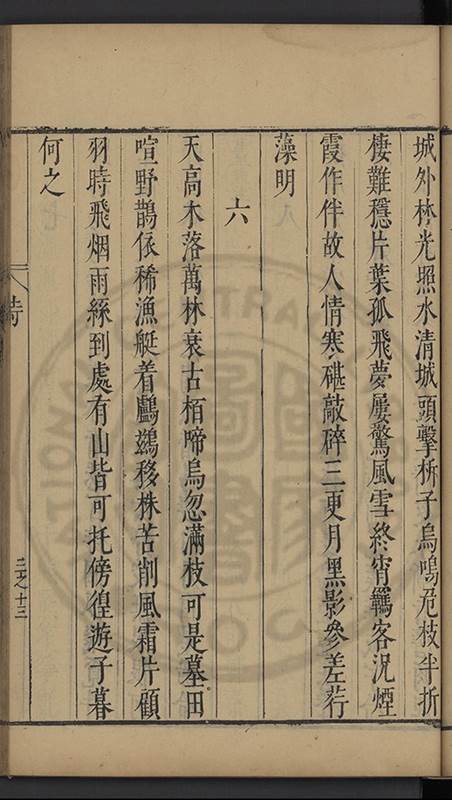 城外林光照水清城頭擊柝子烏鳴危枝半折
棲難穩片葉孤飛夢屢驚風雪終宵羈客況煙
霞作伴故人情寒碪敲碎三更月黑影參差荇
藻明
六
天高木落萬林衰古栢啼烏忽滿枝可是墓田
喧野鵲依稀漁艇着鸕鷀移株苦削風霜片顧
羽時飛烟雨絲到處有山皆可托傍徨遊子暮
何之
詩
二之十三